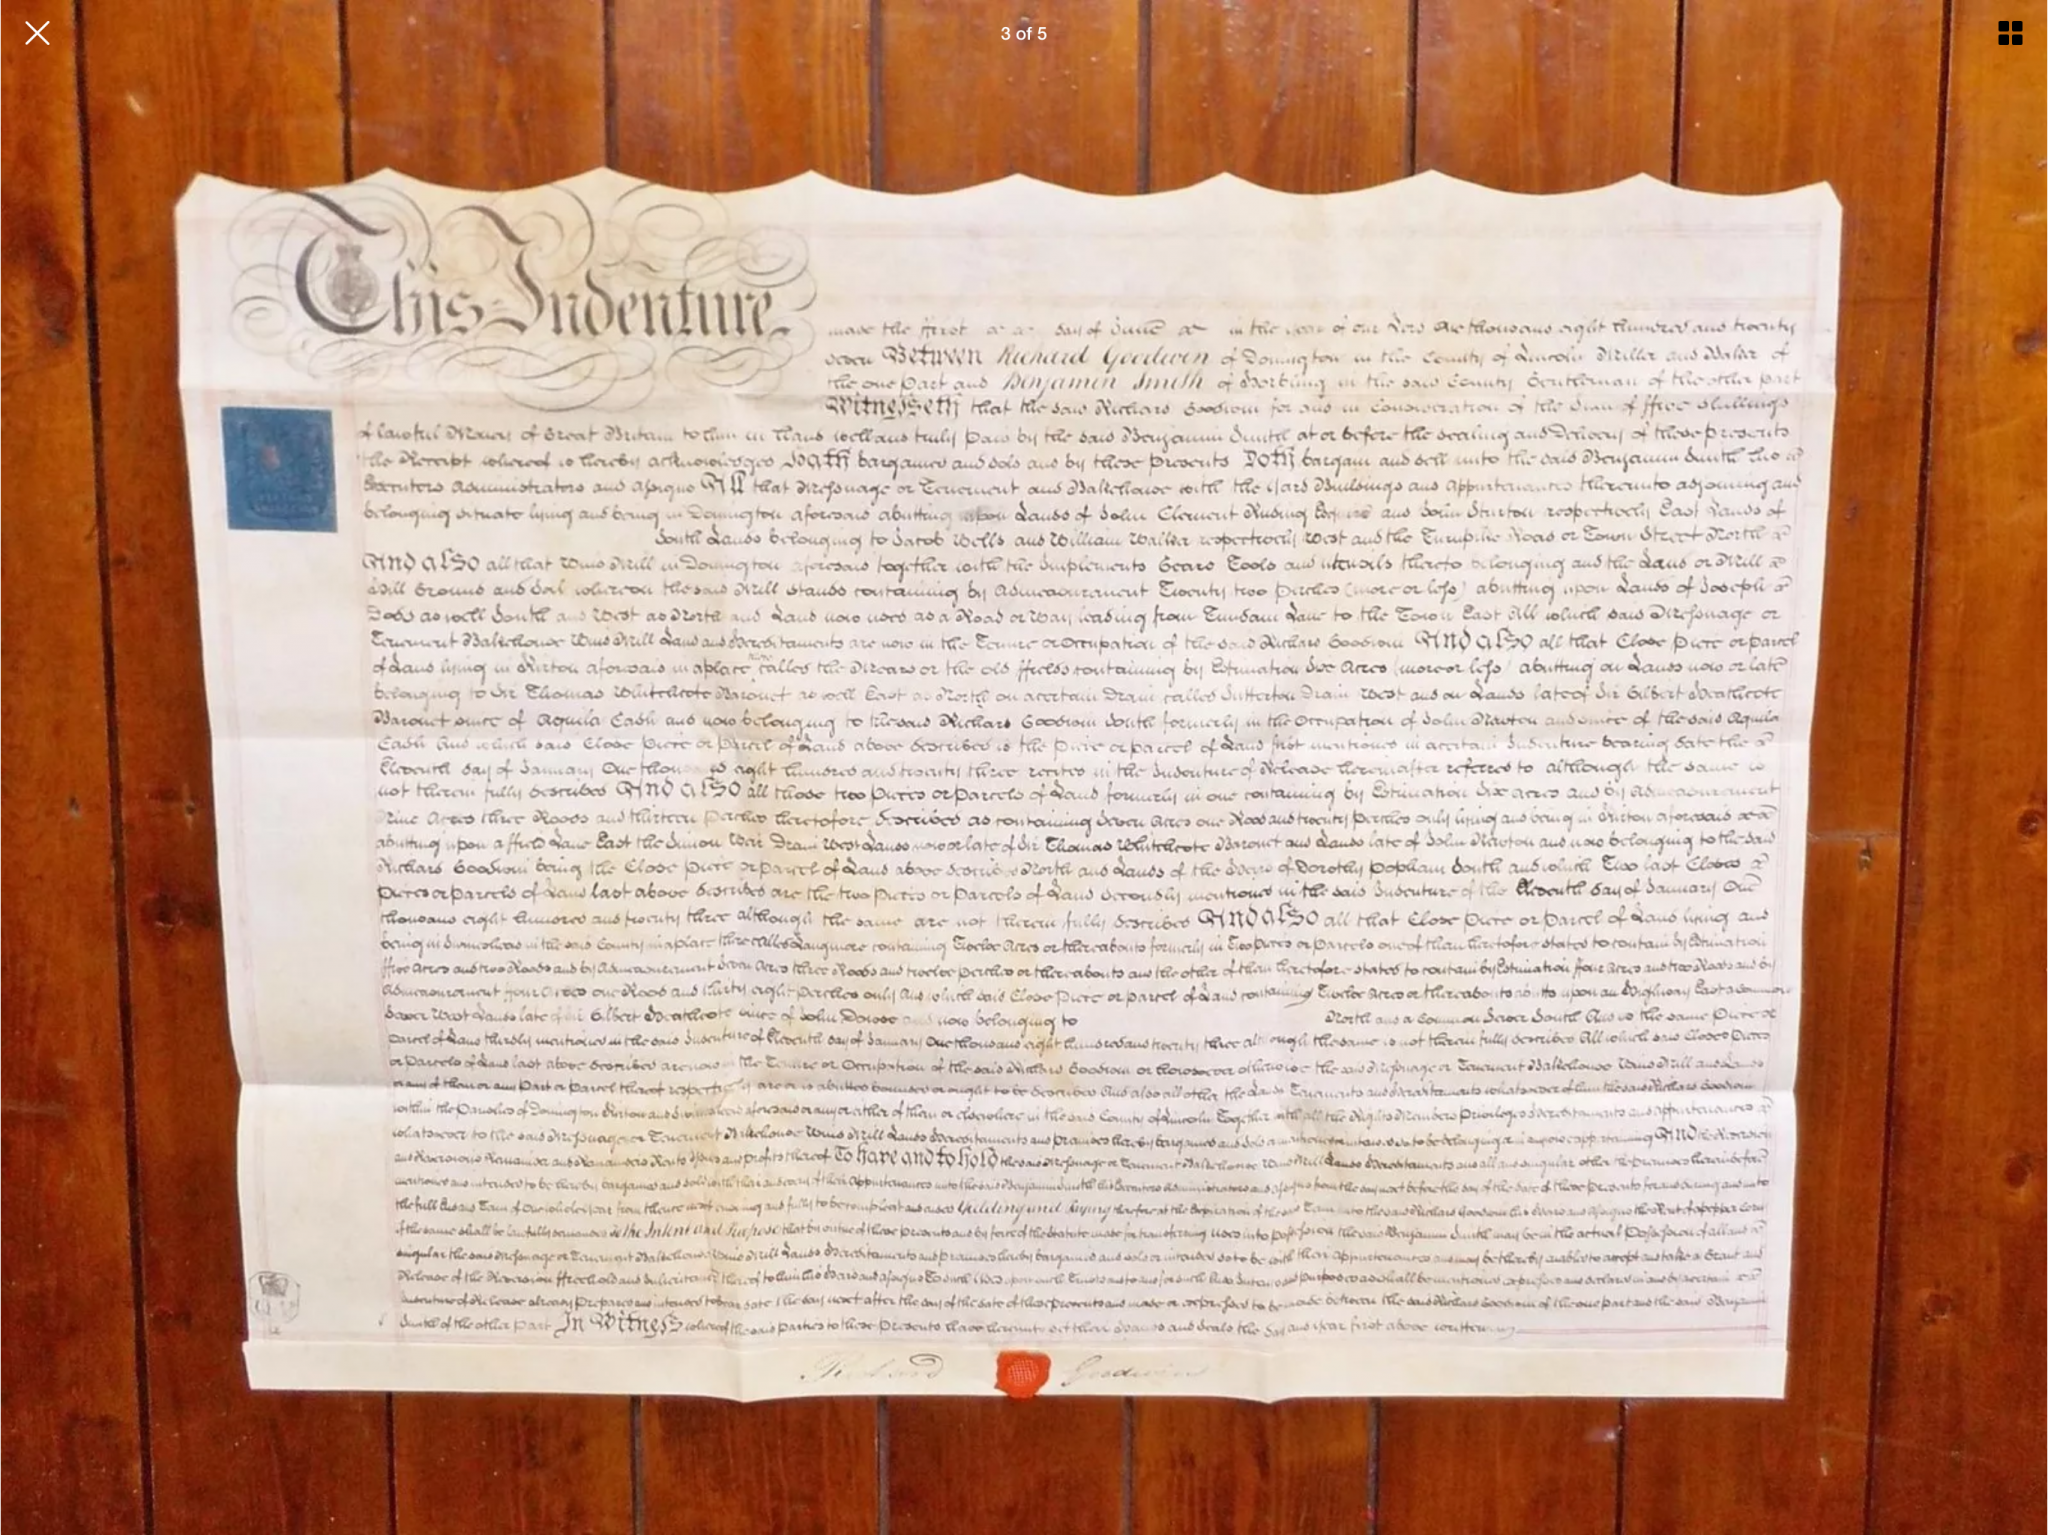 3 of 5
This Indenture
made the first day of June in the year of our Lord One thousand eight hundred and twenty
seven Between Richard Goodwin of Donington in the County of Lincoln Miller and Baker of
the one Part and Benjamin Smith of Horbling in the said County Gentleman of the other part
Witnesseth that the said Richard Goodwin for and in Consideration of the Sum of ffive shillings
of lawful Money of Great Britain to him in Hand well and truly Paid by the said Benjamin Smith at or before the sealing and Delivery of these presents
the Receipt whereof is hereby acknowledged Hath bargained and sold and by these Presents Doth bargain and sell unto the said Benjamin Smith his
Executors Administrators and Assigns All that Messuage or Tenement and Bakehouse with the Yard Buildings and Appurtenances thereunto adjoining and
belonging situate lying and being in Donington aforesaid abutting upon Lands of John Clement Ruding Esquire and John Sturton respectively East Lands of
South Lands belonging to Jacob Wells and William Walker respectively West and the Turnpike Road or Town Street North
And also all that Wind Mill in Donington aforesaid together with the Implements Gears Tools and utensils thereto belonging and the Land or Mill
Hill Ground and Soil whereon the said Mill stands containing by Admeasurement Twenty two Perches (more or less) abutting upon Lands of Joseph
Dods as well South and West as North and Land now used as a Road or Way leading from Lane to the Town East All which said Messuage or
Tenement Bakehouse Wind Mill Land and Hereditaments are now in the Tenure or Occupation of the said Richard Goodwin And also all that Close Piece or Parcel
of Land lying in Kirton aforesaid in a place called the Mears or the old ffields containing by Estimation Six Acres (more or less) abutting on Lands now or late
belonging to Sir Thomas Whitchcote Baronet as well East as North on a certain Drain called Sutterton Drain West and on Lands late of Sir Gilbert Heathcote
Baronet since of Aquila Cash and now belonging to the said Richard Goodwin South formerly in the Occupation of John Newton and since of the said Aquila
Cash And which said Close Piece or Parcel of Land above described is the Piece or parcel of Land first mentioned in a certain Indenture bearing date the
Eleventh day of January One thousand eight hundred and twenty three recited in the Indenture of Release hereinafter referred to although the same is
not therein fully described And also all those two Pieces or Parcels of Land formerly in one containing by Estimation Six Acres and by Admeasurement
Nine Acres three Roods and thirteen Perches heretofore described as containing Seven Acres one Rood and twenty Perches only lying and being in Kirton aforesaid
abutting upon a ffield Lane East the Drain West Lands now or late of Sir Thomas Whitchcote Baronet and Lands late of John Newton and now belonging to the said
Richard Goodwin being the Close Piece or Parcel of Land above described North and Lands of the Heirs of Dorothy Popham South and which Two last Closes
Pieces or Parcels of Land last above described are the two Pieces or Parcels of Land secondly mentioned in the said Indenture of the Eleventh day of January One
thousand eight hundred and twenty three although the same are not therein fully described And also all that Close Piece or Parcel of Land lying and
being in Swineshead in the said County in a place there called Langmore containing Twelve Acres or thereabouts formerly in Two Pieces or Parcels one of them heretofore stated to contain by Estimation
ffive Acres and two Roods and by Admeasurement Seven Acres three Roods and twelve perches or thereabouts and the other of them heretofore stated to contain by Estimation ffour Acres and two Roods and by
Admeasurement ffour Acres one Rood and thirty eight Perches only And which said Close Piece or parcel of Land containing Twelve Acres or thereabouts abutts upon an Highway East a Common
Sewer West Lands late of Sir Gilbert Heathcote since of John and now belonging to North and a Common Sewer South And is the same Piece or
Parcel of Land thirdly mentioned in the said Indenture of Eleventh day of January One thousand eight hundred and twenty three although the same is not therein fully described All which said Closes Pieces
or Parcels of Land last above described are now in the Tenure or Occupation of the said Richard Goodwin or howsoever otherwise the said Messuage or Tenement Bakehouse Wind Mill and Lands
or any of them or any Part or Parcel thereof respectively are or is abutted bounded or ought to be described And also all other the Lands Tenements and Hereditaments whatsoever of him the said Richard Goodwin
within the Parishes of Donington Kirton and Swineshead aforesaid or any or either of them or elsewhere in the said County of Lincoln Together with all the Rights Members Privileges Hereditaments and Appurtenances
whatsoever to the said Messuage or Tenement Bakehouse Wind Mill Lands Hereditaments and premises hereby bargained and sold belonging or in anywise appertaining And the Reversion
and Reversions Remainder and Remainders Rents Issues and profits thereof To have and to hold the said Messuage or Tenement Bakehouse Wind Mill Lands Hereditaments and all and singular other the premises hereinbefore
mentioned and intended to be hereby bargained and sold with their and every of their Appurtenances unto the said Benjamin Smith his Executors Administrators and Assigns from the day next before the day of the date of these Presents for and during and unto
the full End and Term of One whole year from thence next ensuing and fully to be compleat and ended Yielding and Paying therefore at the Expiration of the said Term unto the said Richard Goodwin his Heirs and Assigns the Rent of a pepper Corn
if the same shall be lawfully demanded To the Intent and Purpose that by virtue of these Presents and by force of the Statute made for transferring uses into possession the said Benjamin Smith may be in the actual Possession of all and
singular the said Messuage or Tenement Bakehouse Wind Mill Lands Hereditaments and premises hereby bargained and sold or intended so to be with their appurtenances and may be thereby enabled to accept and take a Grant and
Release of the Reversion ffreehold and Inheritance thereof to him his Heirs and Assigns To such Uses upon such Trusts and to and for such Ends Intents and Purposes as shall be mentioned expressed and declared in and by a certain
Indenture of Release already Prepared and intended to bear date the day next after the day of the date of these presents and made or expressed to be made between the said Richard Goodwin of the one part and the said Benjamin
Smith of the other Part In Witness whereof the said parties to these Presents have hereunto set their Hands and Seals the day and year first above written
Richard Goodwin